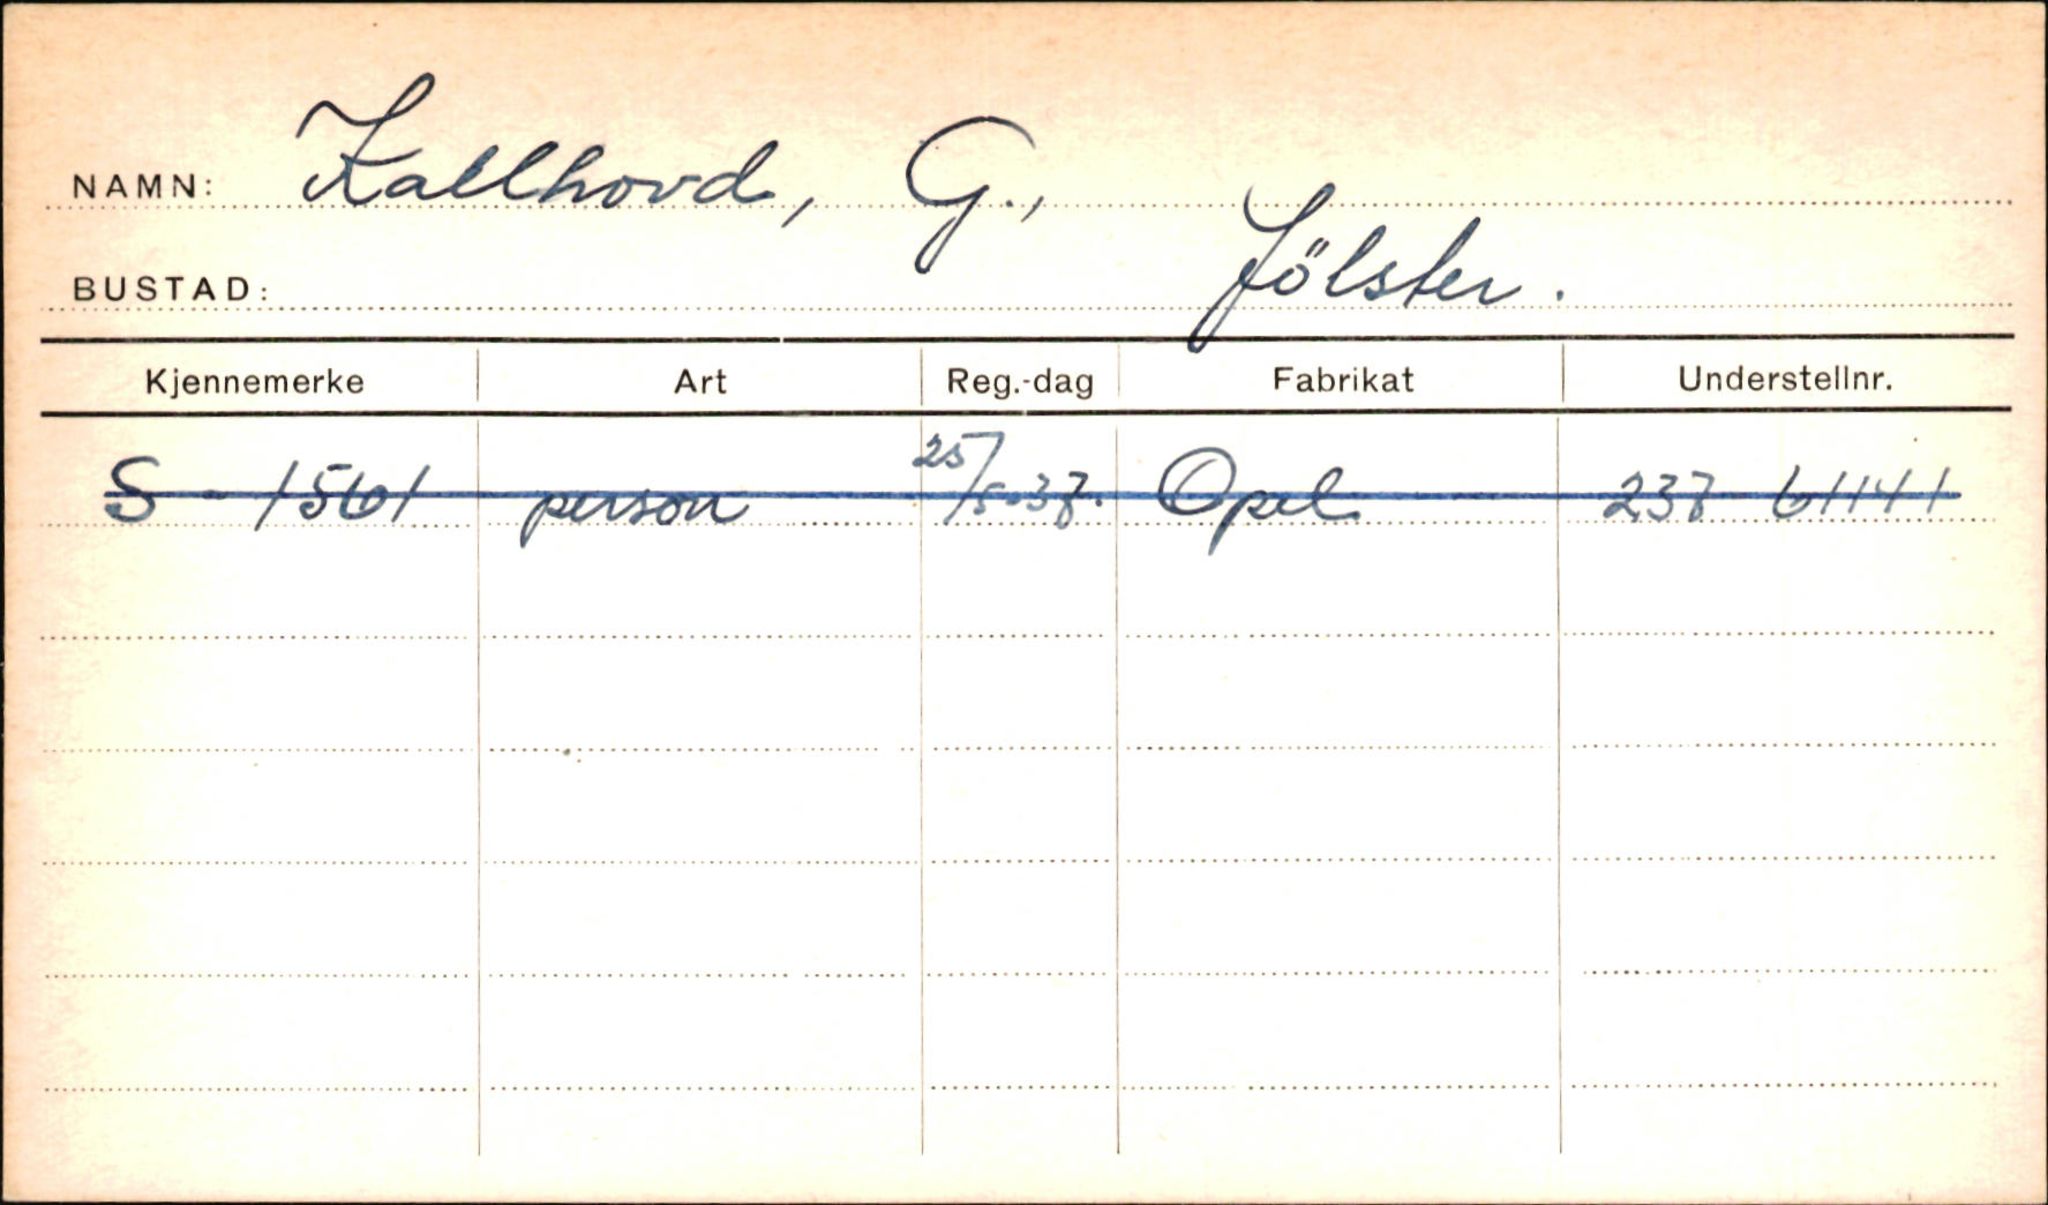 NAMN: Kallhovd, G.,
BUSTAD: Jölster.
Kjennemerke Art Reg.-dag Fabrikat Understellnr.
S - 1561 person 25/5-37. Opel 237 61141